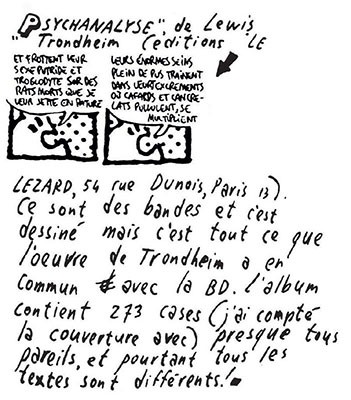 "PSYCHANALYSE", de Lewis
Trondheim (éditions LE
ET FROTTENT LEUR
SEXE PUTRIDE ET
TROGLODYTE SUR DES
RATS MORTS QUE JE
LEUR JETTE EN PATURE
LEURS ÉNORMES SEINS
PLEIN DE PUS TRAINENT
DANS LEURS EXCREMENTS
OÙ CAFARDS ET CANCRE-
LATS PULLULENT, SE
MULTIPLIENT
LEZARD, 54 rue Dunois, Paris 13).
Ce sont des bandes et c'est
dessiné mais c'est tout ce que
l'oeuvre de Trondheim a en
commun avec la BD. L'album
contient 273 cases (j'ai compté
la couverture avec) presque tous
pareils, et pourtant tous les
textes sont différents!